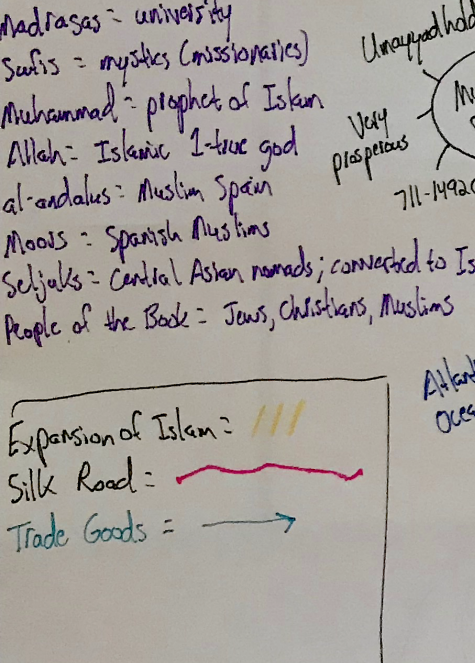 Madrasas = university
Sufis = mystics (missionaries)
Muhammad = prophet of Islam
Allah = Islamic 1-true god
al-andalus = Muslim Spain
Moors = Spanish Muslims
Seljuks = Central Asian nomads; converted to Is
People of the Book = Jews, Christians, Muslims
Umayyad hold
Very
prosperous
711-1492
Atlant
Ocea
Expansion of Islam =
Silk Road =
Trade Goods =